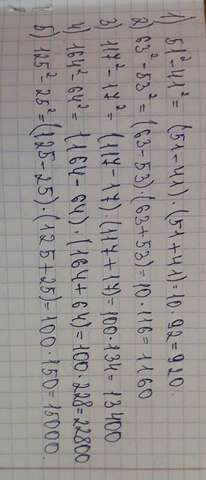 1) 51²-41²=(51-41)·(51+41)=10·92=920.
2) 63²-53²=(63-53)(63+53)=10·116=1160
3) 117²-17²=(117-17)·(117+17)=100·134=13400
4) 164²-64²=(164-64)·(164+64)=100·228=22800
5) 125²-25²=(125-25)·(125+25)=100·150=15000.